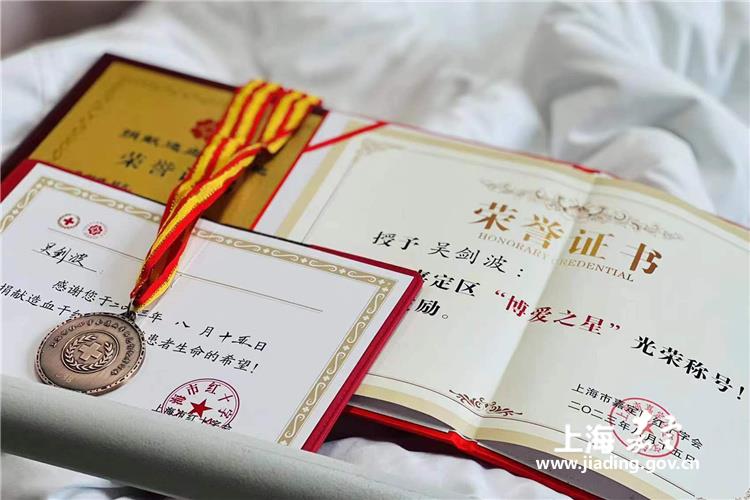 捐献造血
荣誉证
吴剑波：
感谢您于二〇二三年八月十五日
捐献造血干
患者生命的希望！
上海市红十字会
荣誉证书
HONORARY CREDENTIAL
授予吴剑波：
嘉定区“博爱之星”光荣称号！
励。
上海市嘉定区红十字会
二〇二三年八月十五日
上海嘉定
www.jiading.gov.cn